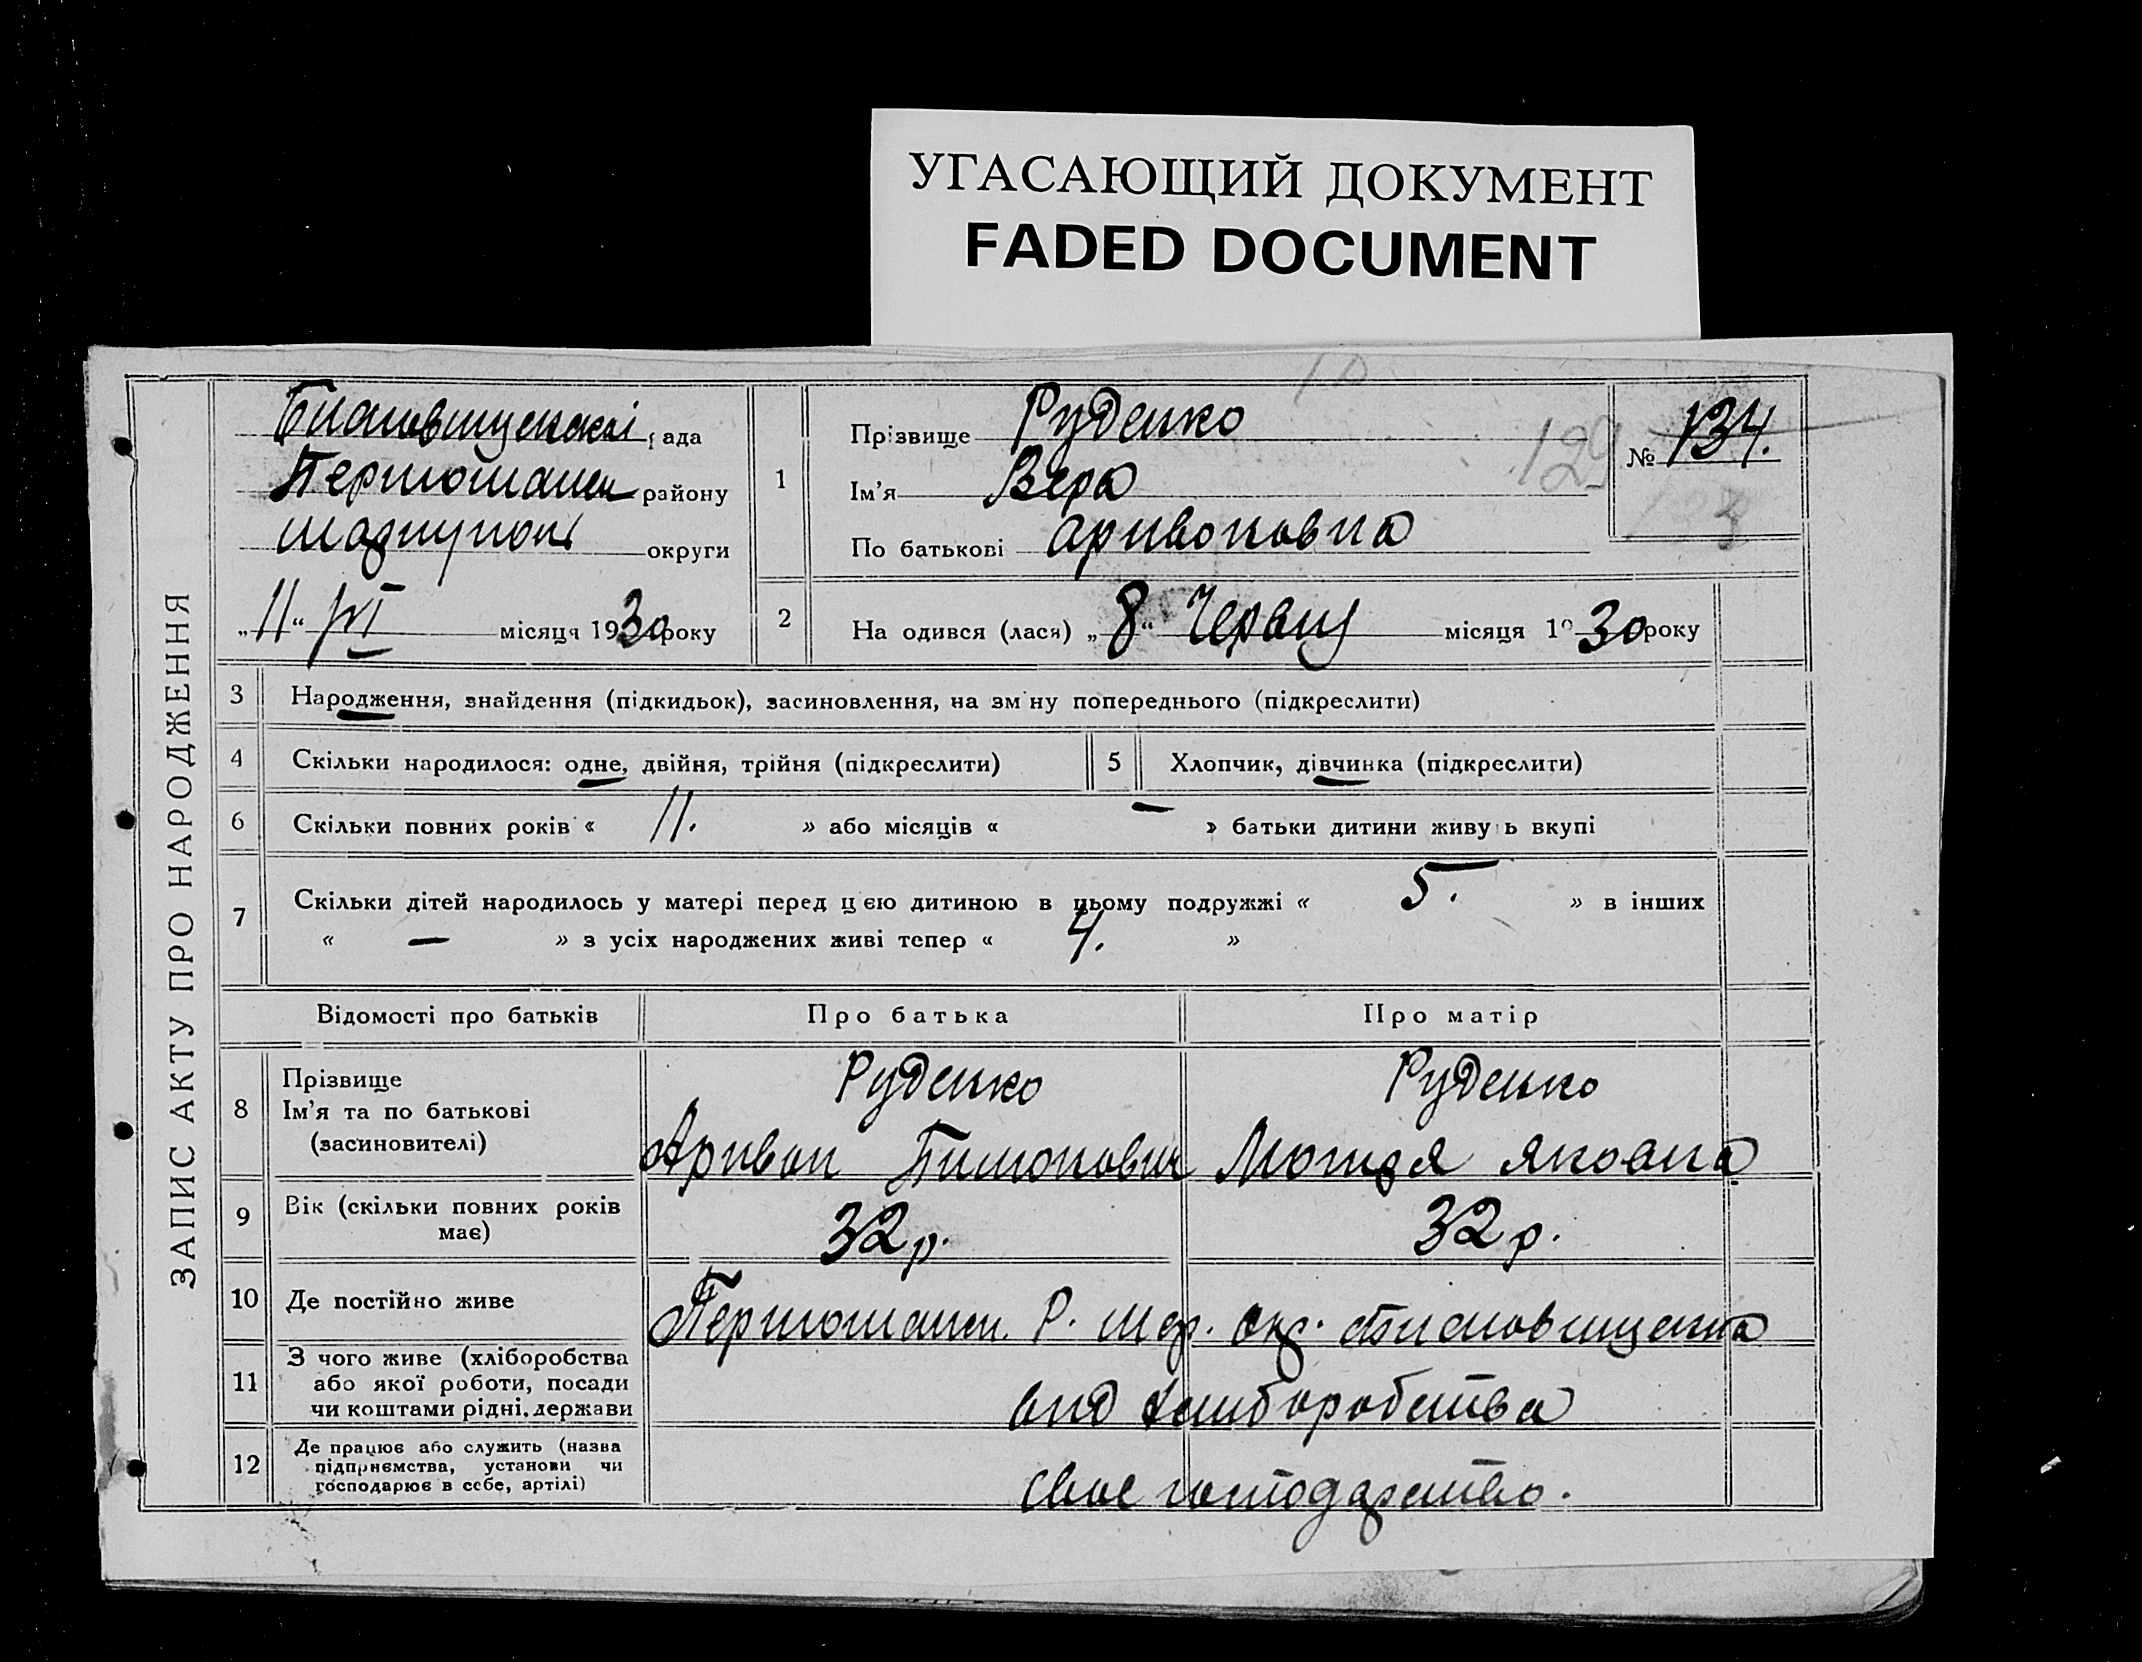 УГАСАЮЩИЙ ДОКУМЕНТ
FADED DOCUMENT
ЗАПИС АКТУ ПРО НАРОДЖЕННЯ
рада
району
округи
„11“ VI місяця 1930 року
1
Прізвище Руденко
Ім'я Вера
По батькові
129
№ 134.
2
На одився (лася) „8“ Червня місяця 1930 року
3 Народження, знайдення (підкидьок), засиновлення, на зміну попереднього (підкреслити)
4 Скільки народилося: одне, двійня, трійня (підкреслити)
5 Хлопчик, дівчинка (підкреслити)
6 Скільки повних років « 11. » або місяців « — » батьки дитини живуть вкупі
7 Скільки дітей народилось у матері перед цією дитиною в цьому подружжі « 5. » в інших
« — » з усіх народжених живі тепер « 4. »
Відомості про батьків Про батька Про матір
8 Прізвище Руденко Руденко
Ім'я та по батькові
(засиновителі)
Мотря Яковна
9 Вік (скільки повних років
має) 32 р. 32 р.
10 Де постійно живе
11 З чого живе (хліборобства
або якої роботи, посади
чи коштами рідні, держави
від хлиборобства
12 Де працює або служить (назва
підприємства, установи чи
господарює в себе, артілі)
свое господарство.